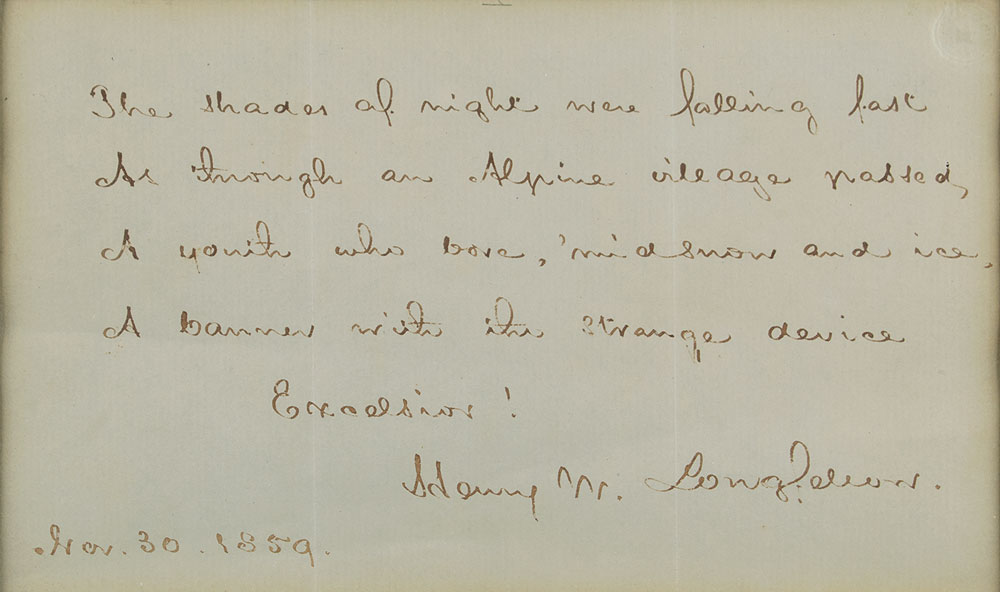 The shades of night were falling fast
As through an Alpine village passed,
A youth who bore, 'mid snow and ice,
A banner with the strange device
Excelsior!
Henry W. Longfellow.
Nov. 30. 1859.